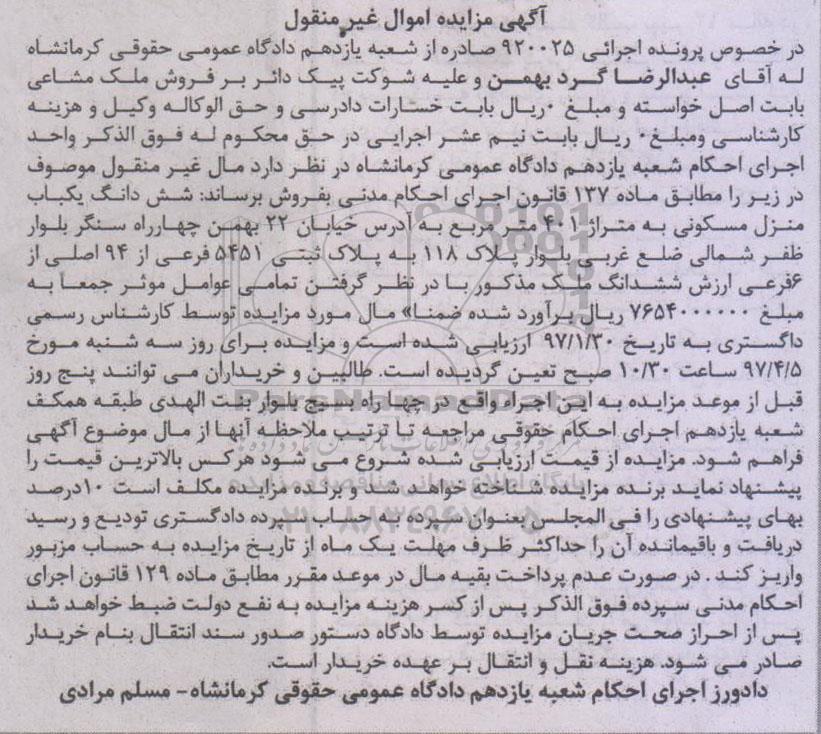 آگهی مزایده اموال غیر منقول
در خصوص پرونده اجرائی ۹۲۰۰۲۵ صادره از شعبه یازدهم دادگاه عمومی حقوقی کرمانشاه
له آقای عبدالرضا گرد بهمن و علیه شوکت پیک دائر بر فروش ملک مشاعی
بابت اصل خواسته و مبلغ ۰ریال بابت خسارات دادرسی و حق الوکاله وکیل و هزینه
کارشناسی ومبلغ۰ ریال بابت نیم عشر اجرایی در حق محکوم له فوق الذکر واحد
اجرای احکام شعبه یازدهم دادگاه عمومی کرمانشاه در نظر دارد مال غیر منقول موصوف
در زیر را مطابق ماده ۱۳۷ قانون اجرای احکام مدنی بفروش برساند: شش دانگ یکباب
منزل مسکونی به متراژ ۴۰۱ متر مربع به آدرس خیابان ۲۲ بهمن چهارراه سنگر بلوار
ظفر شمالی ضلع غربی بلوار پلاک ۱۱۸ به پلاک ثبتی ۵۴۵۱ فرعی از ۹۴ اصلی از
۶فرعی ارزش ششدانگ ملک مذکور با در نظر گرفتن تمامی عوامل موثر جمعا به
مبلغ ۷۶۵۴۰۰۰۰۰۰ ریال برآورد شده ضمنا» مال مورد مزایده توسط کارشناس رسمی
داگستری به تاریخ ۹۷/۱/۳۰ ارزیابی شده است و مزایده برای روز سه شنبه مورخ
۹۷/۴/۵ ساعت ۱۰/۳۰ صبح تعین گردیده است. طالبین و خریداران می توانند پنج روز
قبل از موعد مزایده به این اجراء واقع در چهارراه بسیج بلوار بنت الهدی طبقه همکف
شعبه یازدهم اجرای احکام حقوقی مراجعه تا ترتیب ملاحظه آنها از مال موضوع آگهی
فراهم شود. مزایده از قیمت ارزیابی شده شروع می شود هرکس بالاترین قیمت را
پیشنهاد نماید برنده مزایده شناخته خواهد شد و برنده مزایده مکلف است ۱۰درصد
بهای پیشنهادی را فی المجلس بعنوان سپرده به حساب سپرده دادگستری تودیع و رسید
دریافت و باقیمانده آن را حداکثر ظرف مهلت یک ماه از تاریخ مزایده به حساب مزبور
واریز کند . در صورت عدم پرداخت بقیه مال در موعد مقرر مطابق ماده ۱۲۹ قانون اجرای
احکام مدنی سپرده فوق الذکر پس از کسر هزینه مزایده به نفع دولت ضبط خواهد شد
پس از احراز صحت جریان مزایده توسط دادگاه دستور صدور سند انتقال بنام خریدار
صادر می شود. هزینه نقل و انتقال بر عهده خریدار است.
دادورز اجرای احکام شعبه یازدهم دادگاه عمومی حقوقی کرمانشاه- مسلم مرادی